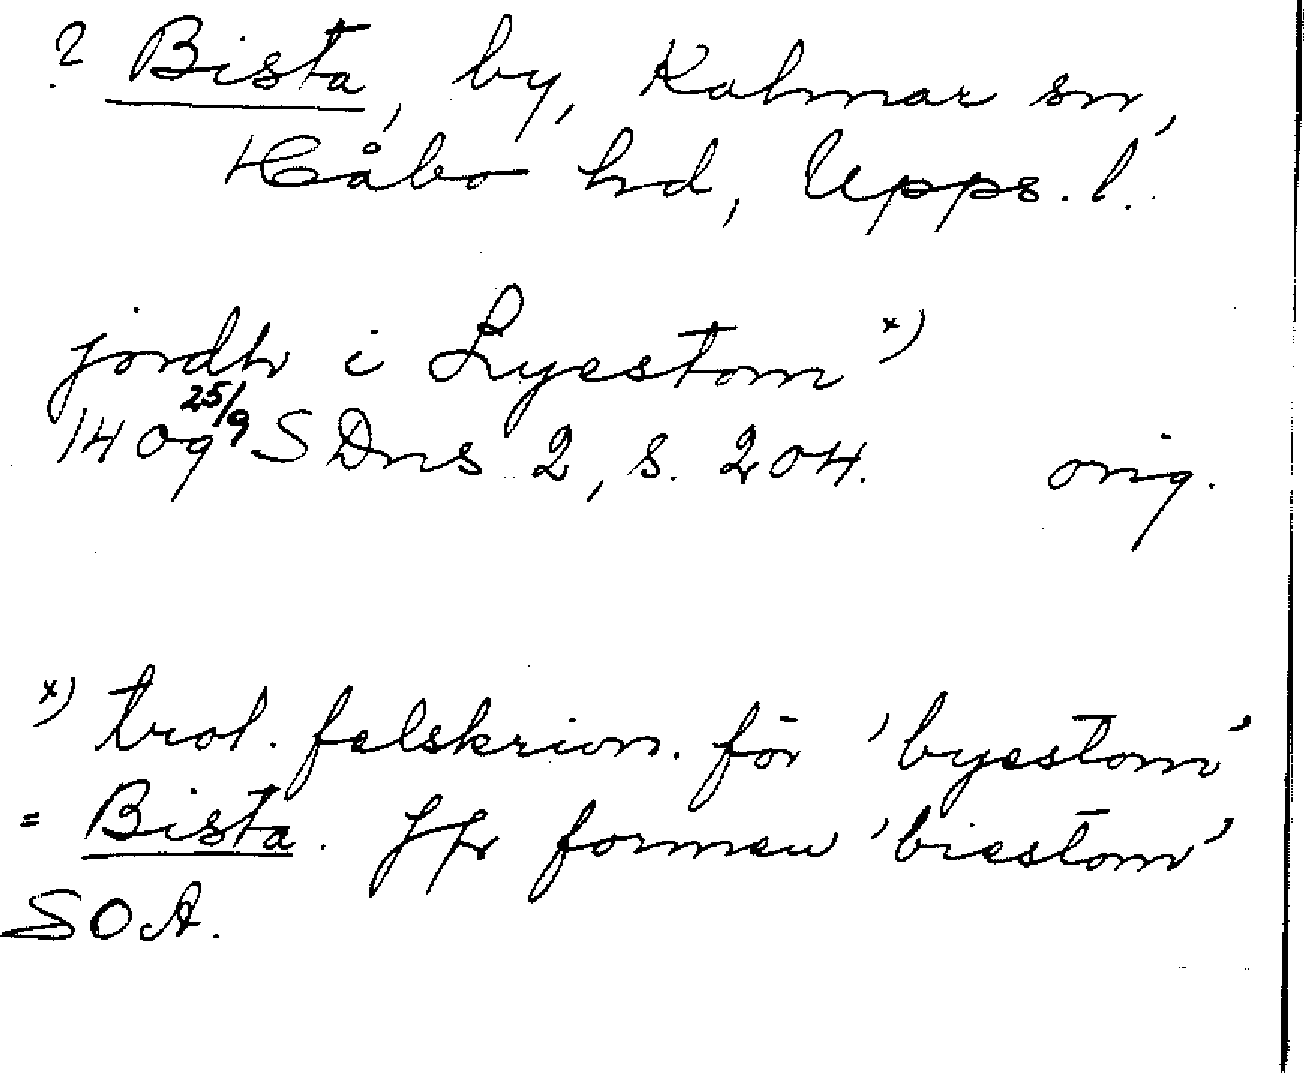 ? Bista, by, Kalmar sn,
Håbo hd, Upps. l.
jordh i Lyestom x)
1409 25/9 SDns 2, s. 204. orig.
x) trol. felskrivn. för 'byestom'
= Bista. Jfr formen 'biestom'
SOA.